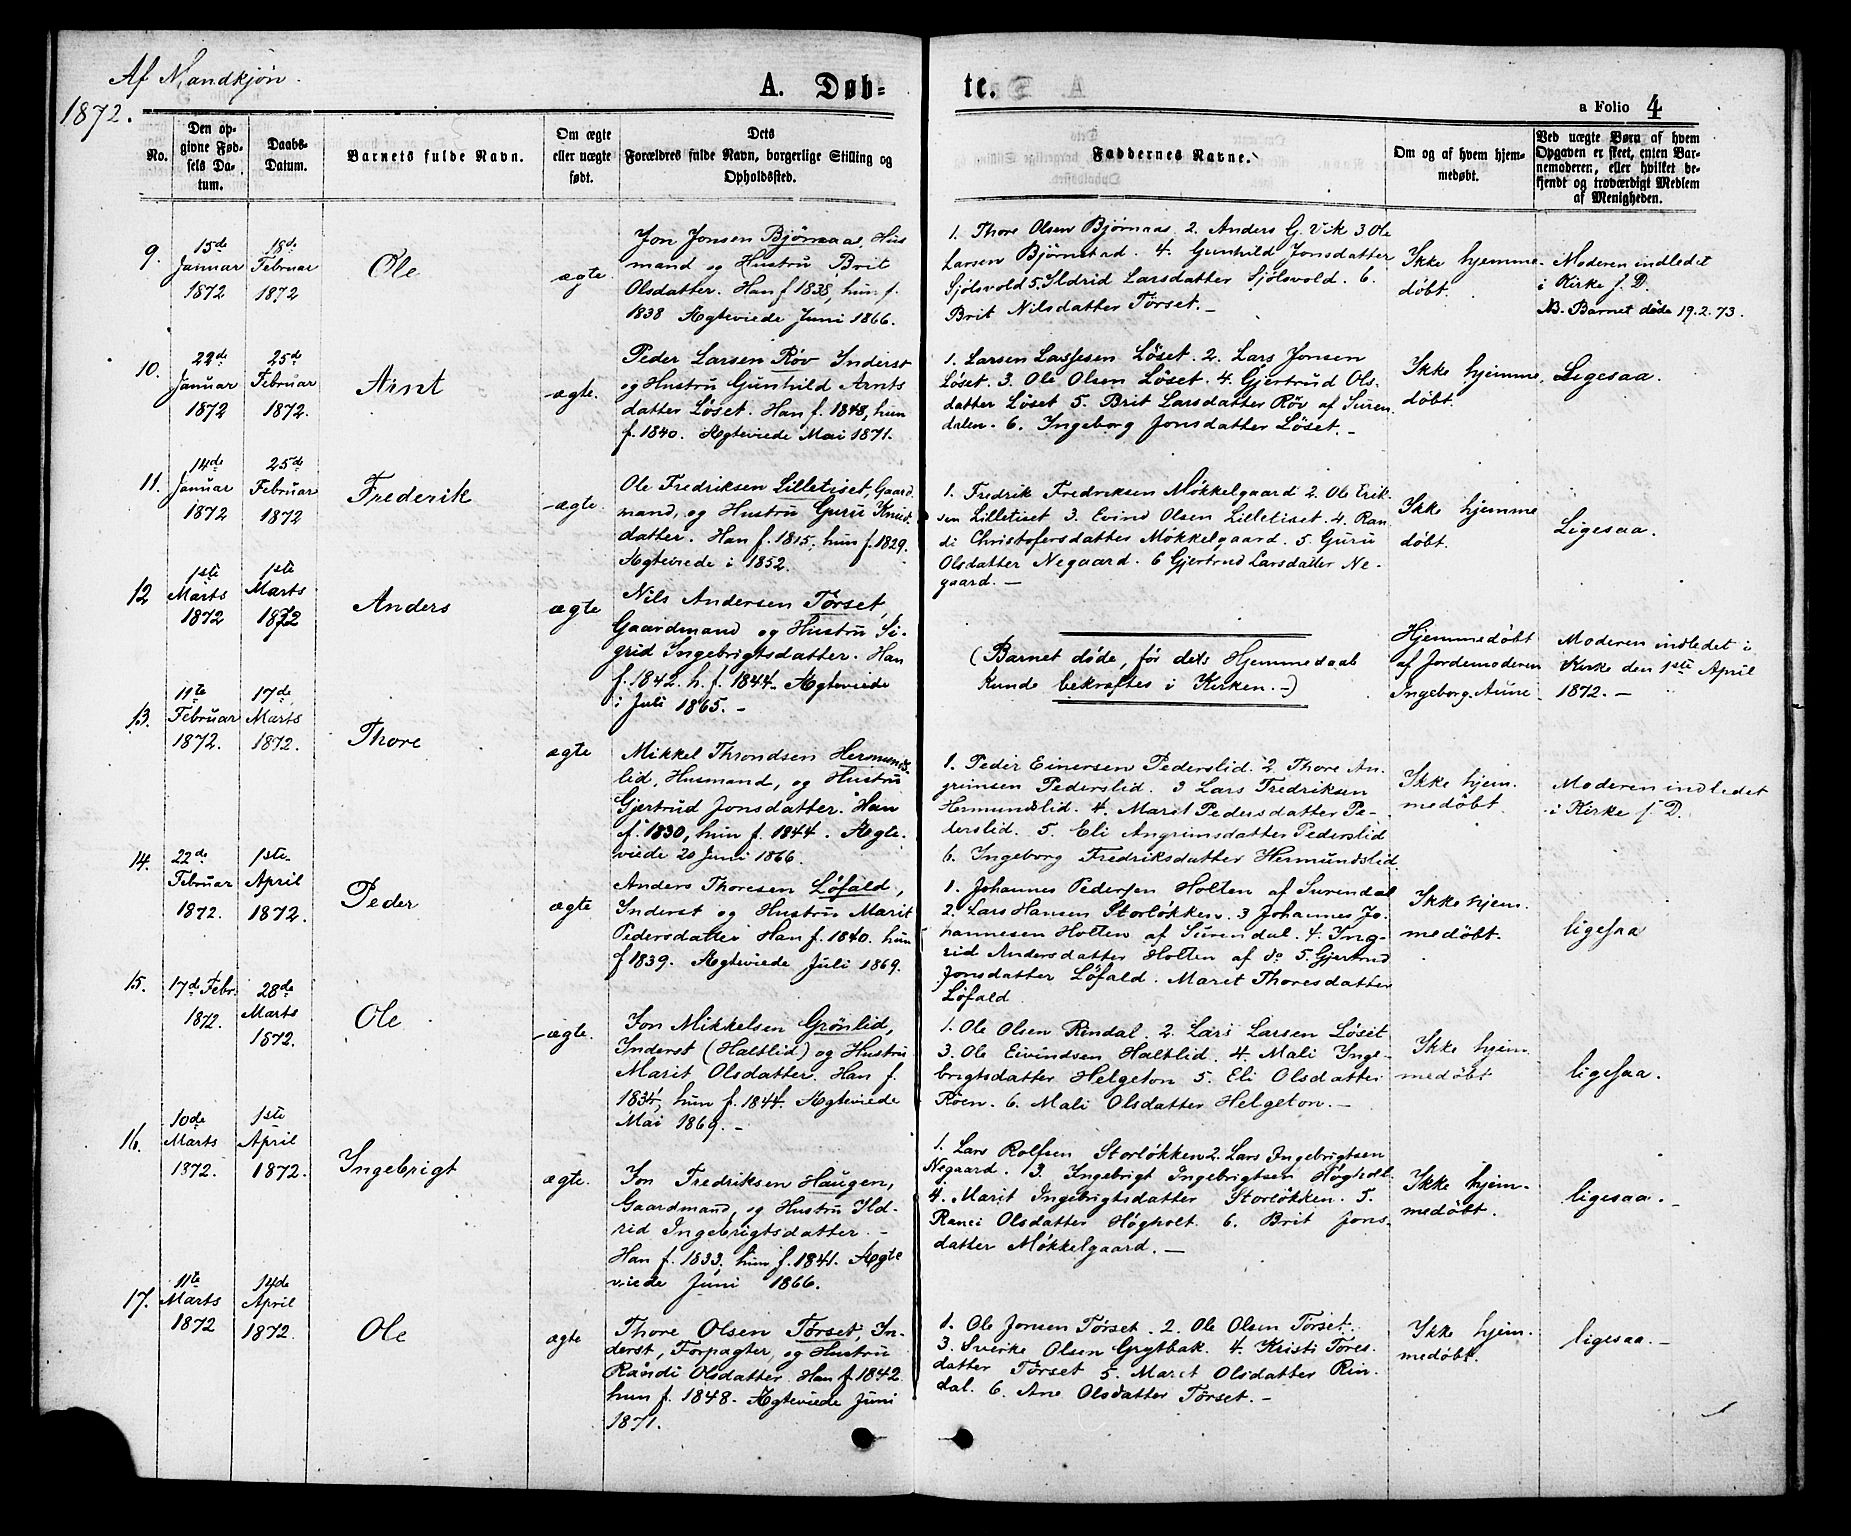 Af Mandkjøn.
1872.
A. Døb-
te.
a Folio 4
No.
Den op-
givne Fød-
sels Da-
tum.
Daabs-
Datum.
Barnets fulde Navn.
Om ægte
eller uægte
født.
Dets
Forældres fulde Navn, borgerlige Stilling og
Opholdssted.
Faddernes Navne.
Om og af hvem hjem-
medøbt.
Ved uægte Børn af hvem
Opgaven er skeet, enten Bar-
nemoderen, eller hvilket be-
kjendt og troværdigt Medlem
af Menigheden.
9.
15de
Januar
1872
18de
Februar
1872
Ole
ægte.
Jon Jonsen Bjørnaas, Hus
mand og Hustru Brit
Olsdatter. Han f 1838, hun f.
1838 Ægteviede Juni 1866.
1. Thore Olsen Bjørnaas. 2. Anders G. Vik 3 Ole
Larsen Bjørnstad. 4. Gunhild Jonsdatter
Sjölsvold 5. Ildrid Larsdatter Sjölsvold. 6.
Brit Nilsdatter Törset. –
Ikke hjemme
döbt.
Moderen indledet
i Kirke s. D.
NB. Barnet döde 19.2.73.
10.
22de
Januar
1872
25de
Februar
1872.
Arnt
ægte.
Peder Larsen Røv Inderst
og Hustru Gunhild Arnts
datter Løset. Han f. 1848, hun
f. 1840. Ægteviede Mai 1871.
1. Larsen Lassesen Löset. 2. Lars Jonsen
Löset. 3. Ole Olsen Löset. 4. Gjertrud Ols-
datter Löset 5. Brit Larsdatter Röv af Suren
dalen. 6. Ingeborg Jonsdatter Löset. –
Ikke hjemme
döbt.
Ligesaa.
11.
14de
Januar
1872
25de
Februar
1872
Frederik
ægte.
Ole Fredriksen Lilletiset, Gaard
mand, og Hustru Guru Knud
datter. Han f. 1815, hun f. 1829.
Ægteviede i 1852.
1. Fredrik Fredriksen Mökkelgaard 2. Ole Erik-
sen Lilletiset 3. Evind Olsen Lilletiset. 4. Ran
di Christofersdatter Mökkelgaard. 5. Guru
Olsdatter Negaard. 6 Gjertrud Larsdatter Ne-
gaard. –
Ikke hjemme
döbt.
Ligesaa.
12
1ste
Marts
1872
1ste
Marts
1872
Anders
ægte
Nils Andersen Törset,
Gaardmand og Hustru Si-
grid Ingebrigtsdatter. Han
f. 1842. h. f. 1844. Ægteviede
i Juli 1865. –
(Barnet döde, før dets Hjemmedaab
kunde bekræftes i Kirken. –)
Hjemmedöbt
af Jordemoderen
Ingeborg Aune
Moderen indledet i
Kirke den 1ste April
1872. –
13.
11te
Februar
1872.
17de
Marts
1872.
Thore
ægte
Mikkel Throndsen Hermunds
lid, Husmand, og Hustru
Gjertrud Jonsdatter. Han
f. 1830, hun f. 1844. Ægte-
viede 20 Juni 1866.
1. Peder Einersen Pederslid. 2. Thore An-
grimsen Pederslid. 3 Lars Fredriksen
Hermundslid. 4. Maret Pedersdatter Pe-
derslid. 5. Eli Angrimsdatter Pederslid
6. Ingeborg Fredriksdatter Hermundslid
Ikke hjem-
medöbt.
Moderen indledet
i Kirke s. D.
14.
22de
Februar
1872.
1ste
April
1872.
Peder
ægte
Anders Thoresen Löfald,
Inderst og Hustru Marit
Pedersdatter Han f. 1840. hun
f 1839. Ægteviede Juli 1869.
1. Johannes Pedersen Holten af Surendal
2. Lars Hansen Storlökken. 3 Johannes Jo-
hannesen Holten af Surendal. 4. Ing-
rid Andersdatter Holten af do 5. Gjertrud
Jonsdatter Löfald. Maret Thoresdatter
Löfald
Ikke hjem-
medöbt.
ligesaa
15.
17de Febr.
1872.
28de
Marts
1872.
Ole
ægte.
Jon Mikkelsen Grönlid,
Inderst (Haltlid) og Hustru
Marit Olsdatter. Han f.
1834, hun f. 1844. Ægteviede
Mai 1869. –
1. Ole Olsen Rindal. 2. Lars Larsen Löset
3. Ole Eivindsen Haltlid. 4. Mali Inge-
brigtsdatter Helgeton 5. Eli Olsdatter
Röen. 6. Mali Olsdatter Helgeton. –
Ikke hjem
medöbt
ligesaa.
16.
10de
Marts
1872.
1ste
April
1872.
Ingebrigt
ægte.
Jon Fredriksen Haugen,
Gaardmand, og Hustru Ild-
rid Ingebrigtsdatter. –
Han f. 1833, hun f. 1841. Ægte
viede Juni 1866.
1. Lars Rolfsen Storlökken 2. Lars Ingebrigtsen
Negaard. 3. Ingebrigt Ingebrigtsen Högholt
4. Marit Ingebrigtsdatter Storlökken. 5.
Ranei Olsdatter Högholt. 6. Brit Jons-
datter Mökkelgaard. –
Ikke hjem-
medöbt.
ligesaa. –
17.
11te
Marts
1872
14de
April
1872.
Ole
ægte
Thore Olsen Törset, In-
derst, Forpagter, og Hustru
Randi Olsdatter. Han f. 1842.
hun f. 1848. Ægteviede Juni
1871.
1. Ole Jonsen Törset. 2. Ole Olsen Törset.
3. Sverke Olsen Grytbak. 4. Kristi Tores-
datter Törset 5. Maret Olsdatter Rin-
dal. 6. Ane Olsdatter Törset. –
Ikke hjem-
medöbt.
ligesaa. –